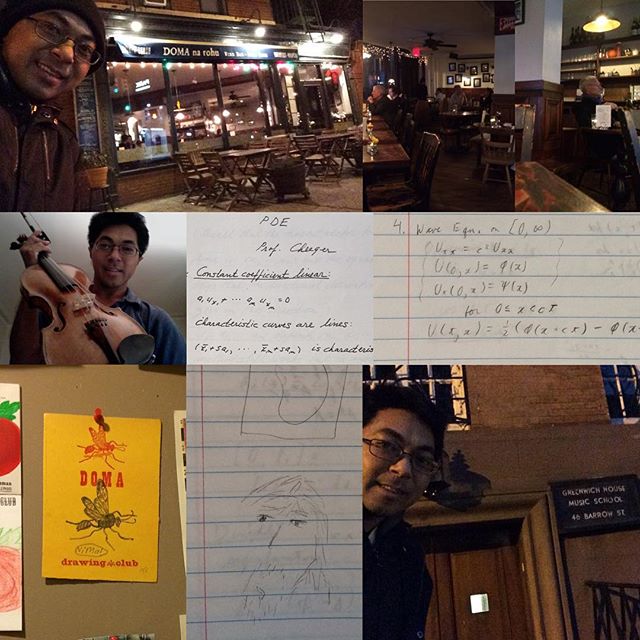 DOMA na rohu
PDE
Prof. Cheeger
Constant coefficient linear:
a₁uₓ₁+ ··· aₘuₓₘ=0
characteristic curves are lines:
(x̄₁+sa₁, ···, x̄ₘ+saₘ) is characteris
4. Wave Eqn. on [0,∞)
Utt = c²Uxx
U(0,x) = φ(x)
Ut(0,x) = ψ(x)
for 0≤x<ct
U(t,x) = ½(φ(x+ct) - φ(x
CLUB
DOMA
drawing club
GREENWICH HOUSE
MUSIC SCHOOL
46 BARROW ST.